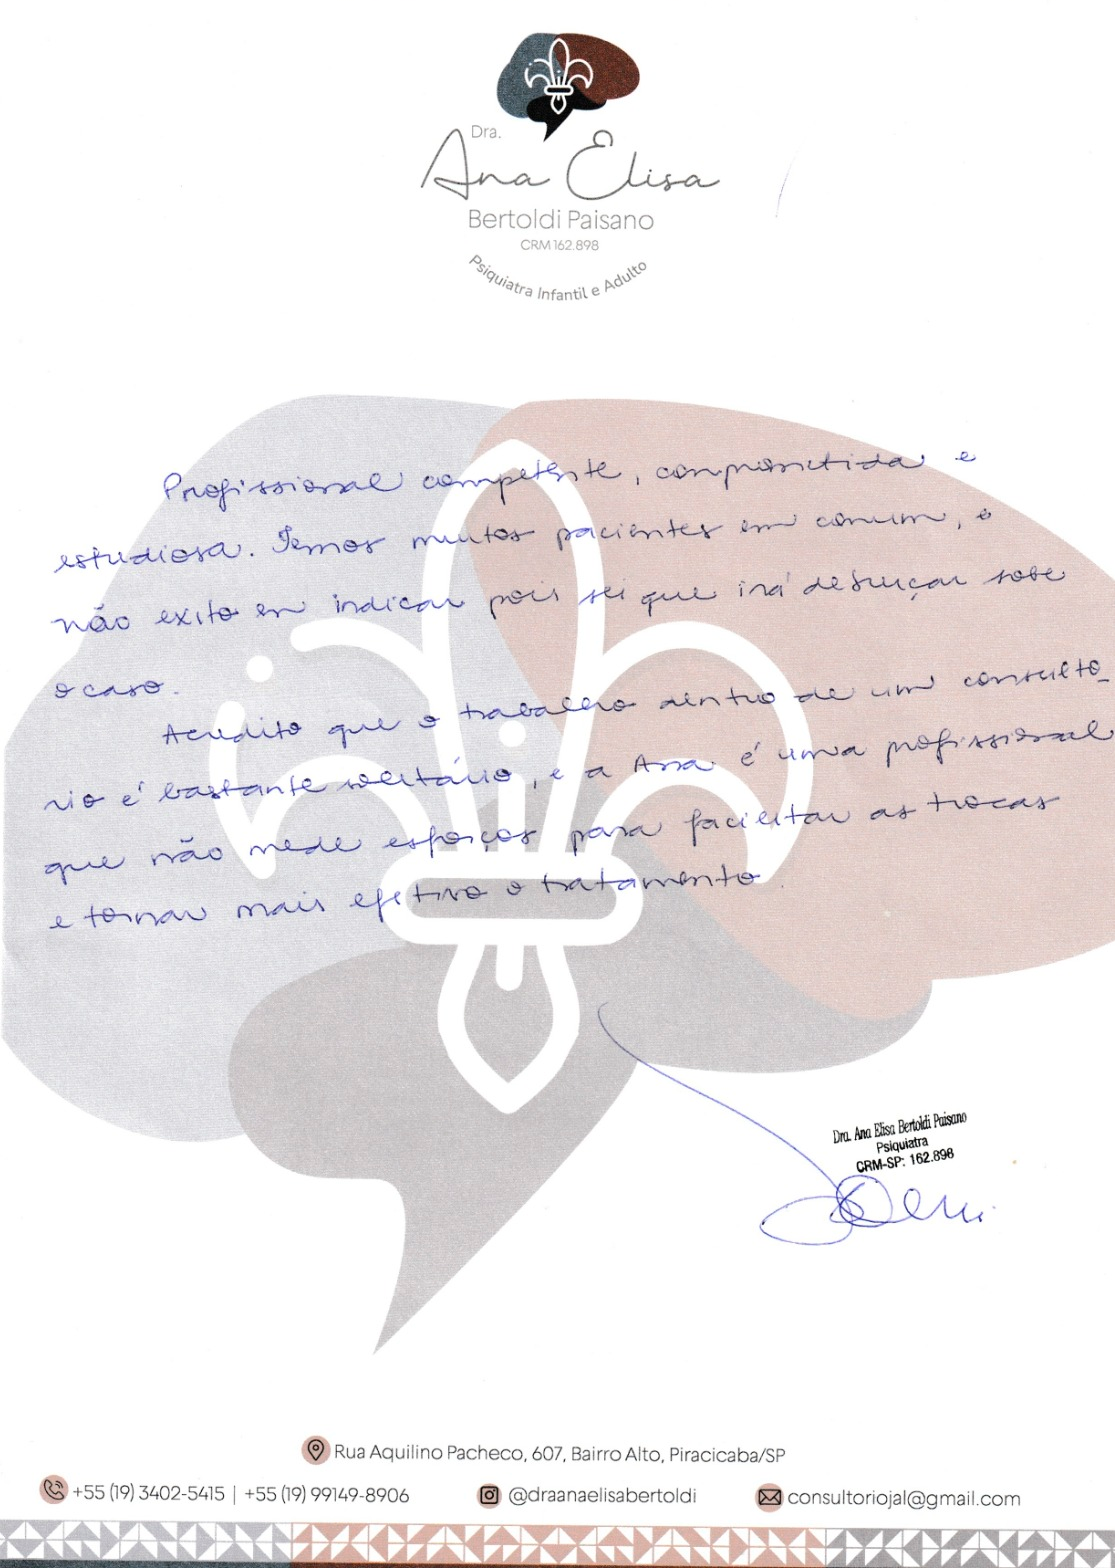 Dra.
Ana Elisa
Bertoldi Paisano
CRM 162.898
Psiquiatra Infantil e Adulto
Profissional competente, comprometida e
estudiosa. Temos muitos pacientes em comum, e
não exito em indicar pois sei que irá debruçar sobe
o caso.
Acredito que o trabalho dentro de um consultó-
rio é bastante solitário, e a Ana é uma profissional
que não mede esforços para facilitar as trocas
e tornar mais efetivo o tratamento.
Dra. Ana Elisa Bertoldi Paisano
Psiquiatra
CRM-SP: 162.898
Rua Aquilino Pacheco, 607, Bairro Alto, Piracicaba/SP
+55 (19) 3402-5415 | +55 (19) 99149-8906 @draanaelisabertoldi consultoriojal@gmail.com